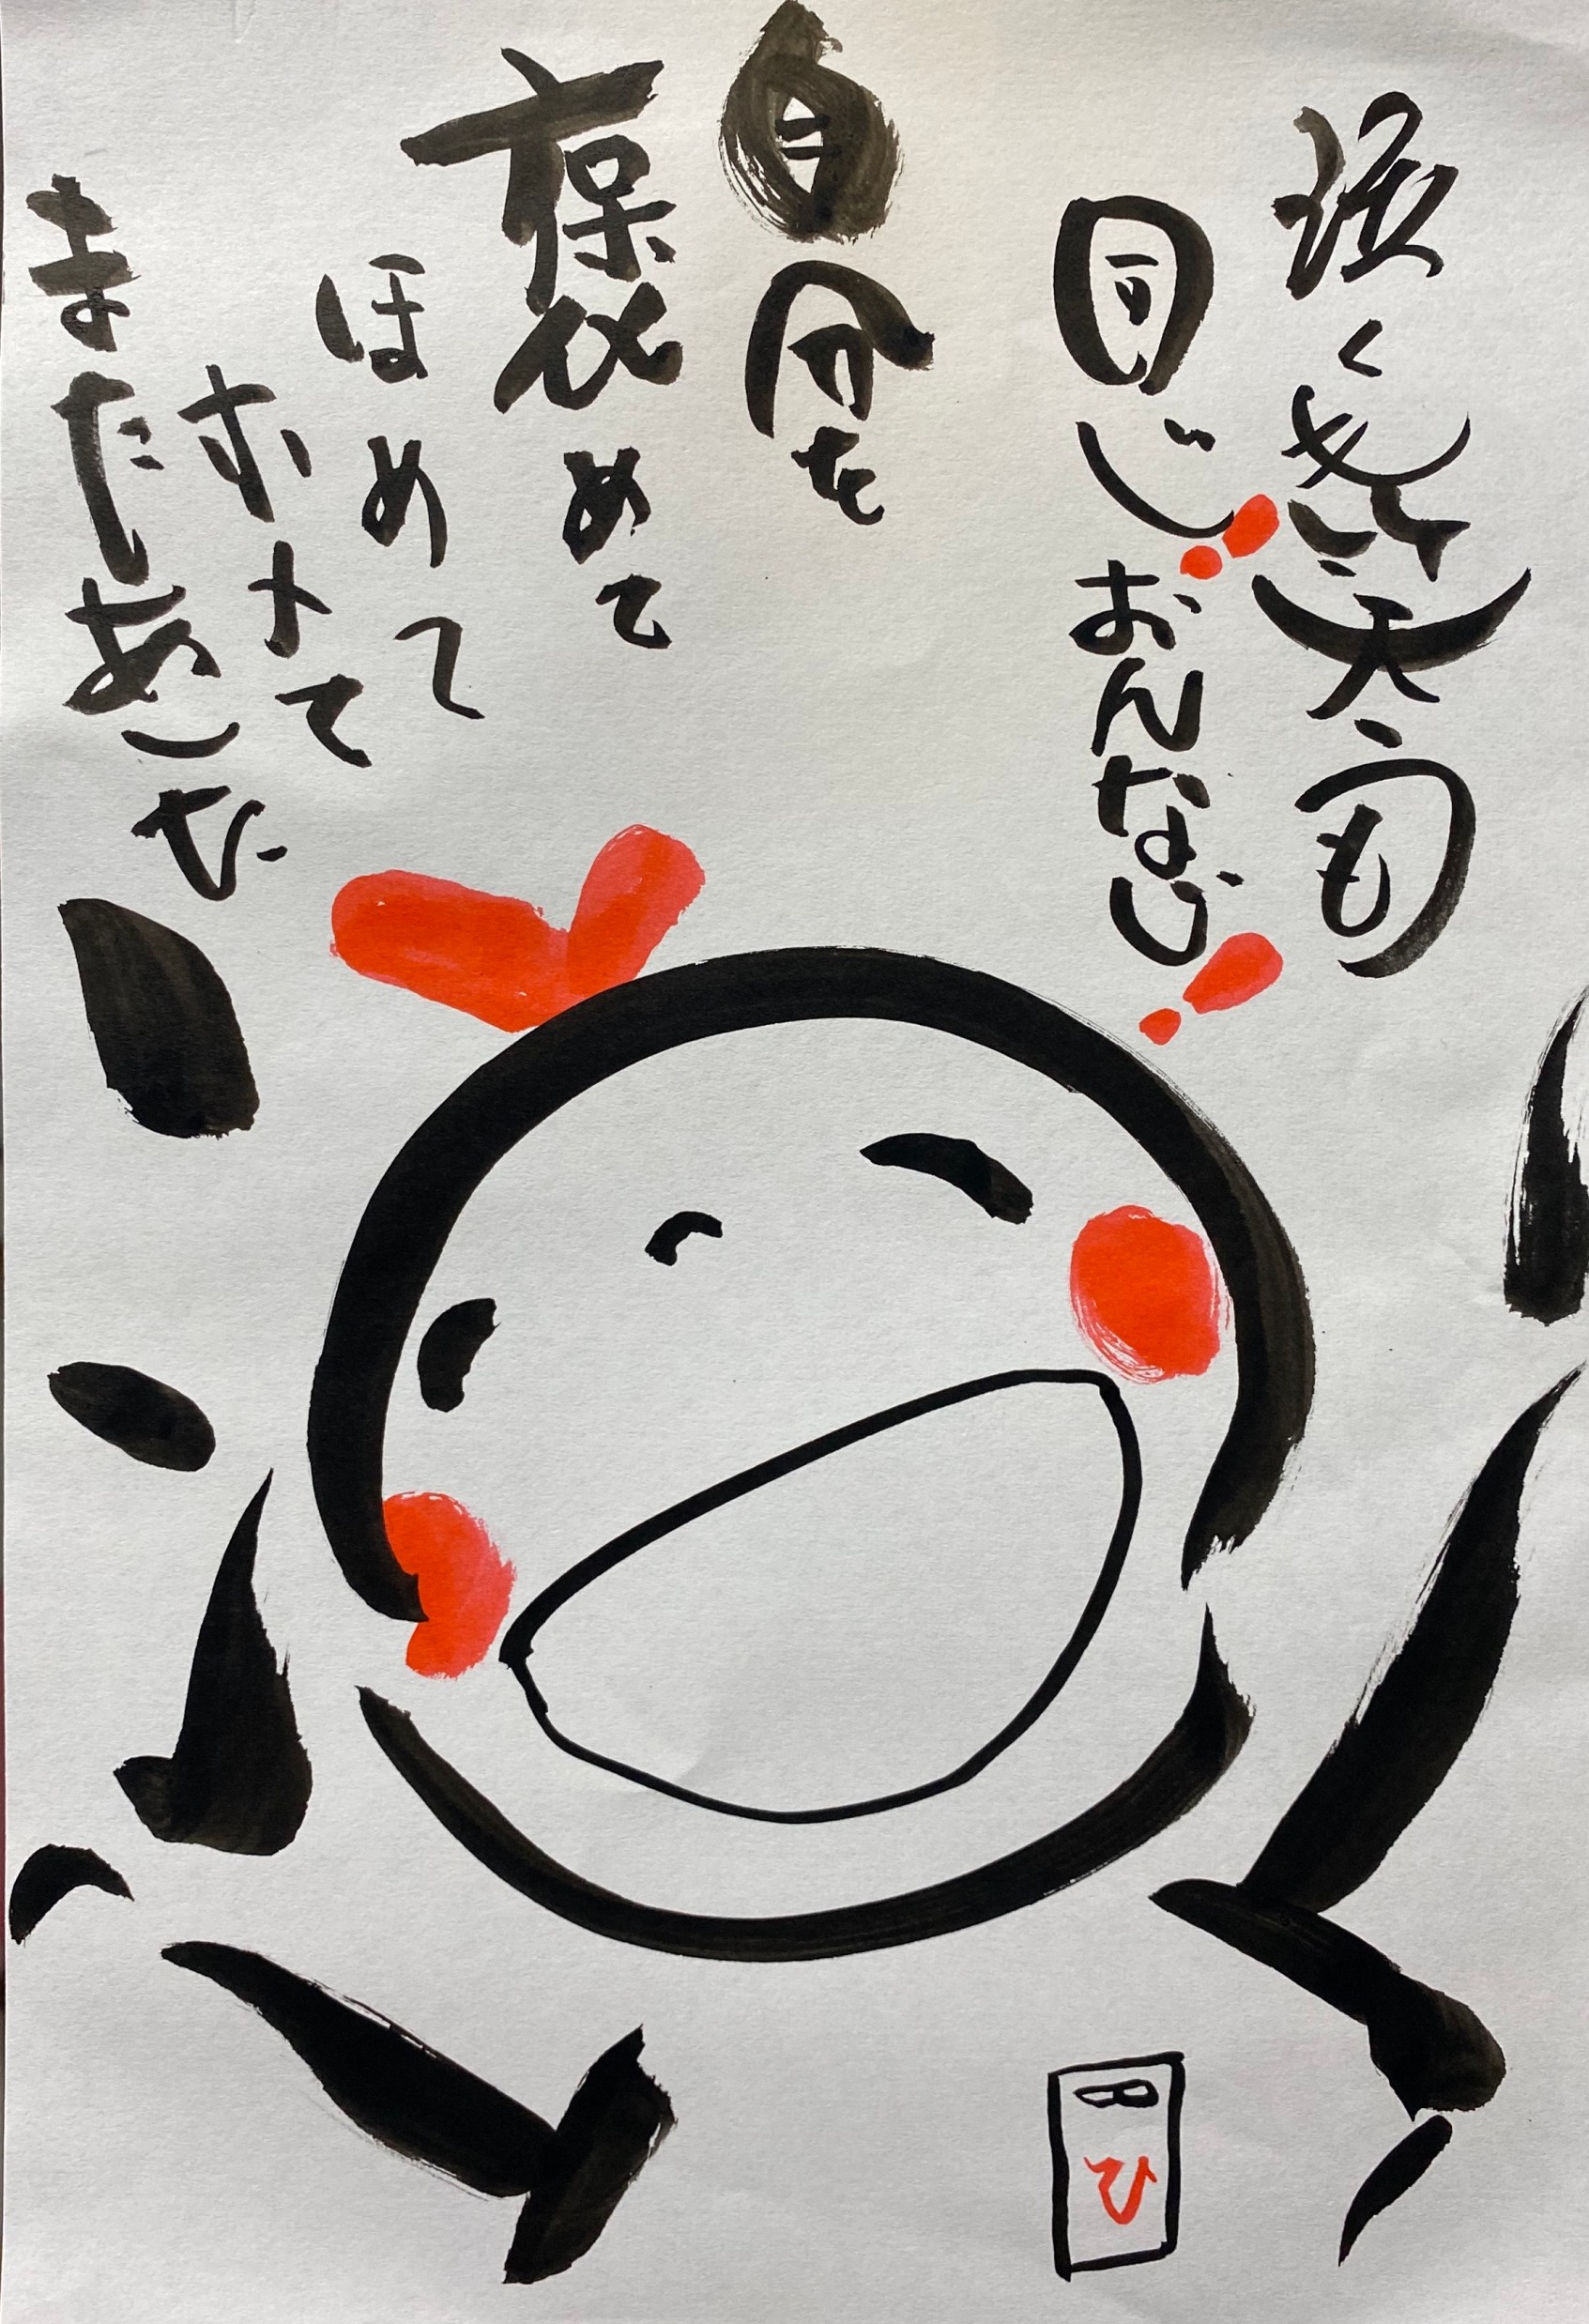 泣くも笑うも
同じ!おんなじ!
自分を
褒めて
ほめて
ホメて
またあした
ひ